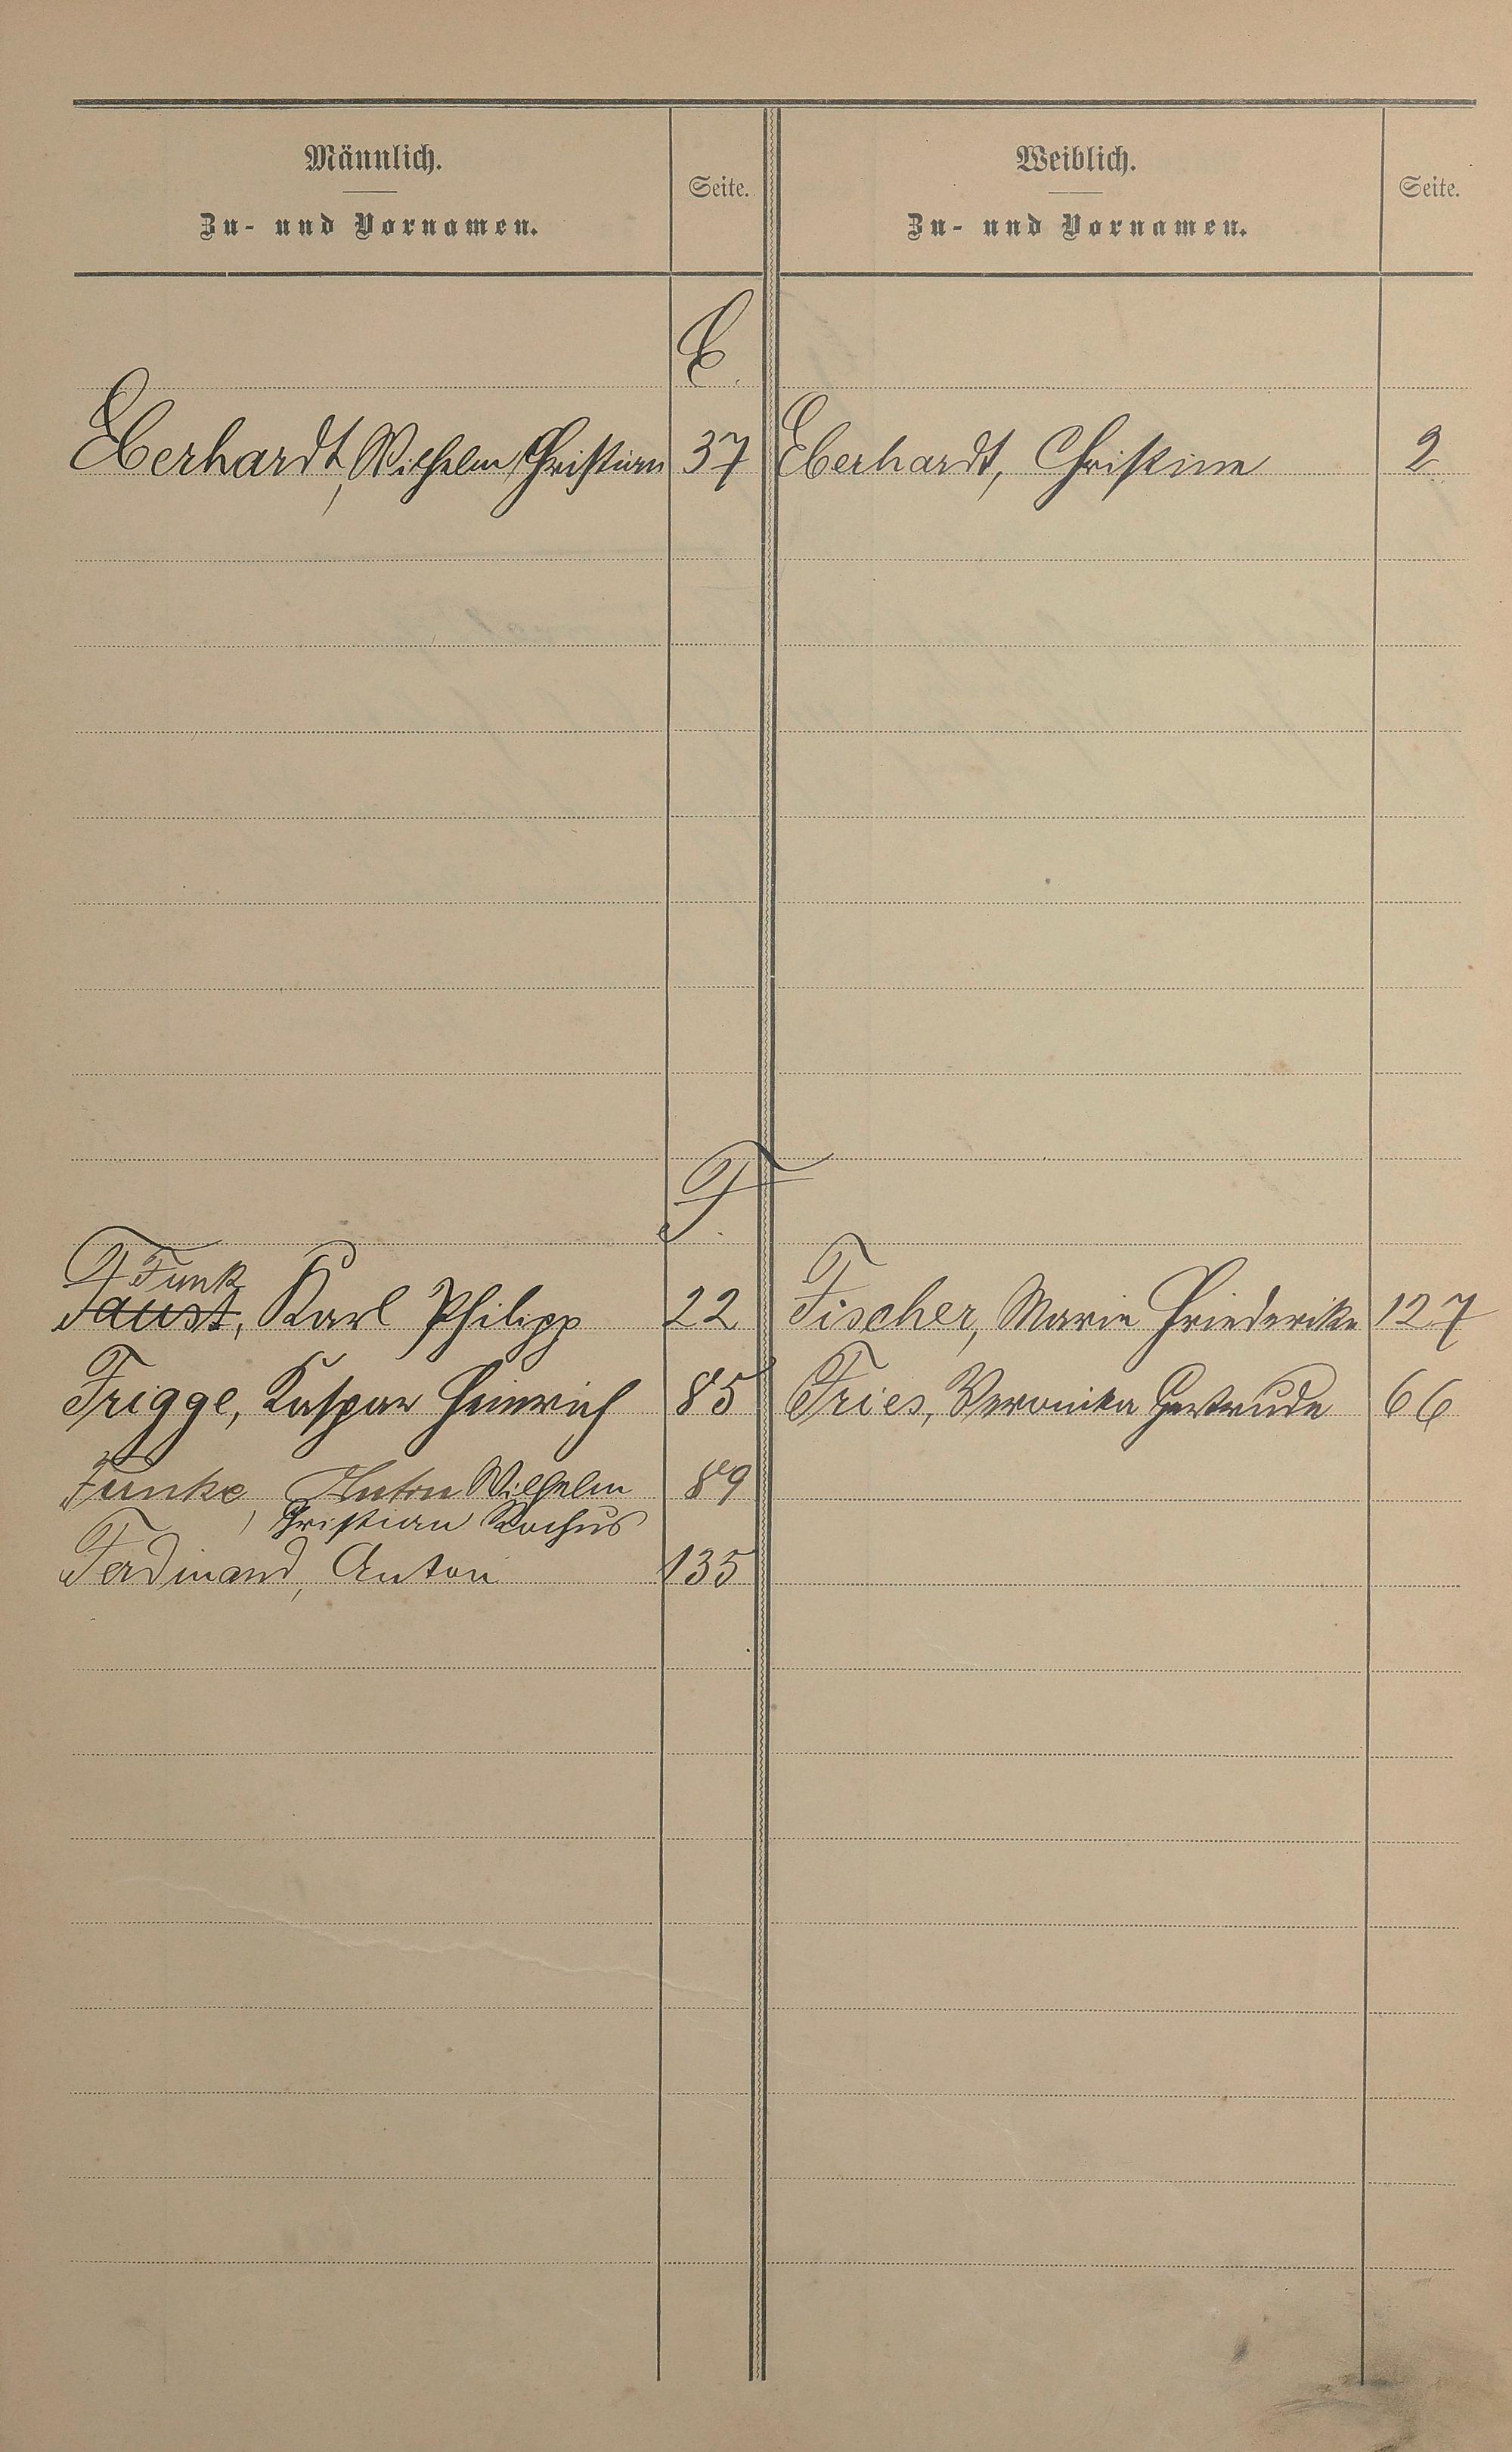 Männlich.
Zu- und Vornamen.
Seite.
Weiblich.
Zu- und Vornamen.
Seite.
E.
Eberhardt, Wilhelm Christian 37 Eberhardt, Christine 2
F.
Funk
Faust, Karl Philipp 22 Fischer, Marie Friederike 127
Frigge, Kaspar Heinrich 85 Fries, Veronika Gertrude 66
Funke, Anton Wilhelm 89
Christian Rochus
Ferdinand, Anton 135